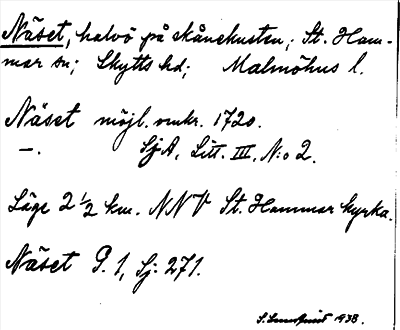 Näset, halvö på skånekusten; St. Ham-
mar sn; Skytts hd; Malmöhus l.
Näset möjl. omkr. 1720.
—. SjA, Litt. III, N:o 2.
Läge 2 1/2 km. NNV St. Hammar kyrka.
Näset P. 1, Sj: 271.
S. Lundquist 1938.